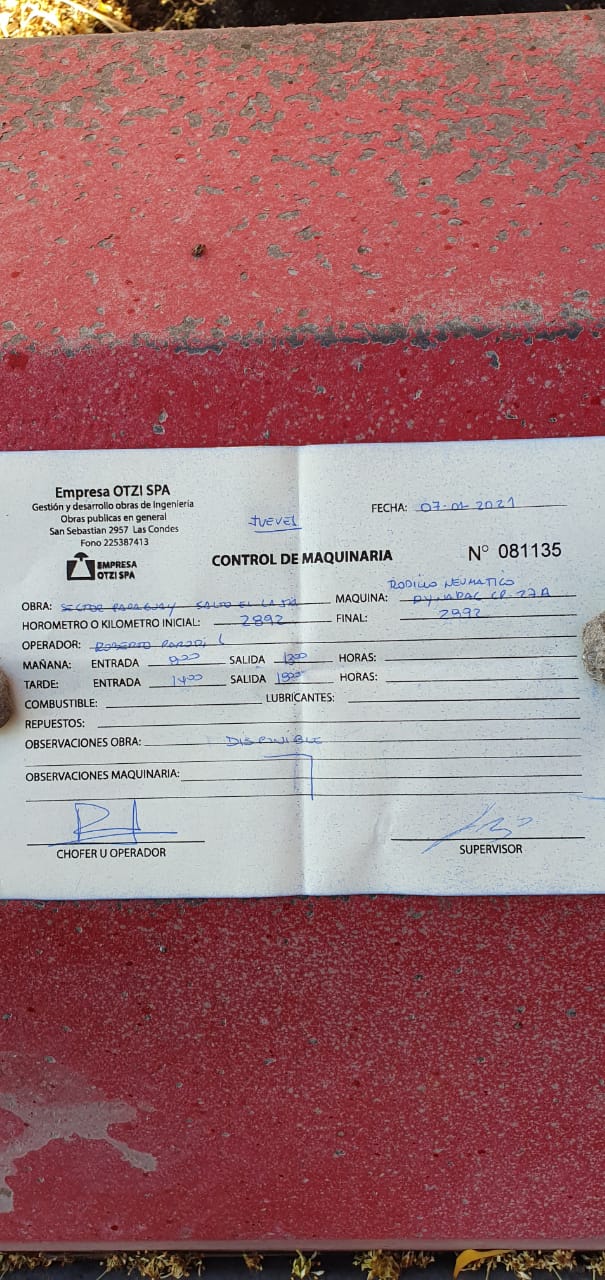 Empresa OTZI SPA
Gestión y desarrollo obras de Ingeniería
Obras publicas en general
San Sebastian 2957 Las Condes
Fono 225387413
EMPRESA
OTZI SPA
JUEVES
FECHA: 07-01-2021
CONTROL DE MAQUINARIA
N° 081135
RODILLO NEUMATICO
OBRA: SECTOR PARAGUAY SALTO EL LAJA MAQUINA: DYNAPAC CP-27A
HOROMETRO O KILOMETRO INICIAL: 2892 FINAL: 2892
OPERADOR: ROBERTO
MAÑANA: ENTRADA 8:00 SALIDA 13:00 HORAS:
TARDE: ENTRADA 14:00 SALIDA 18:00 HORAS:
COMBUSTIBLE: LUBRICANTES:
REPUESTOS:
OBSERVACIONES OBRA: DISPNIBLE
OBSERVACIONES MAQUINARIA:
CHOFER U OPERADOR
SUPERVISOR